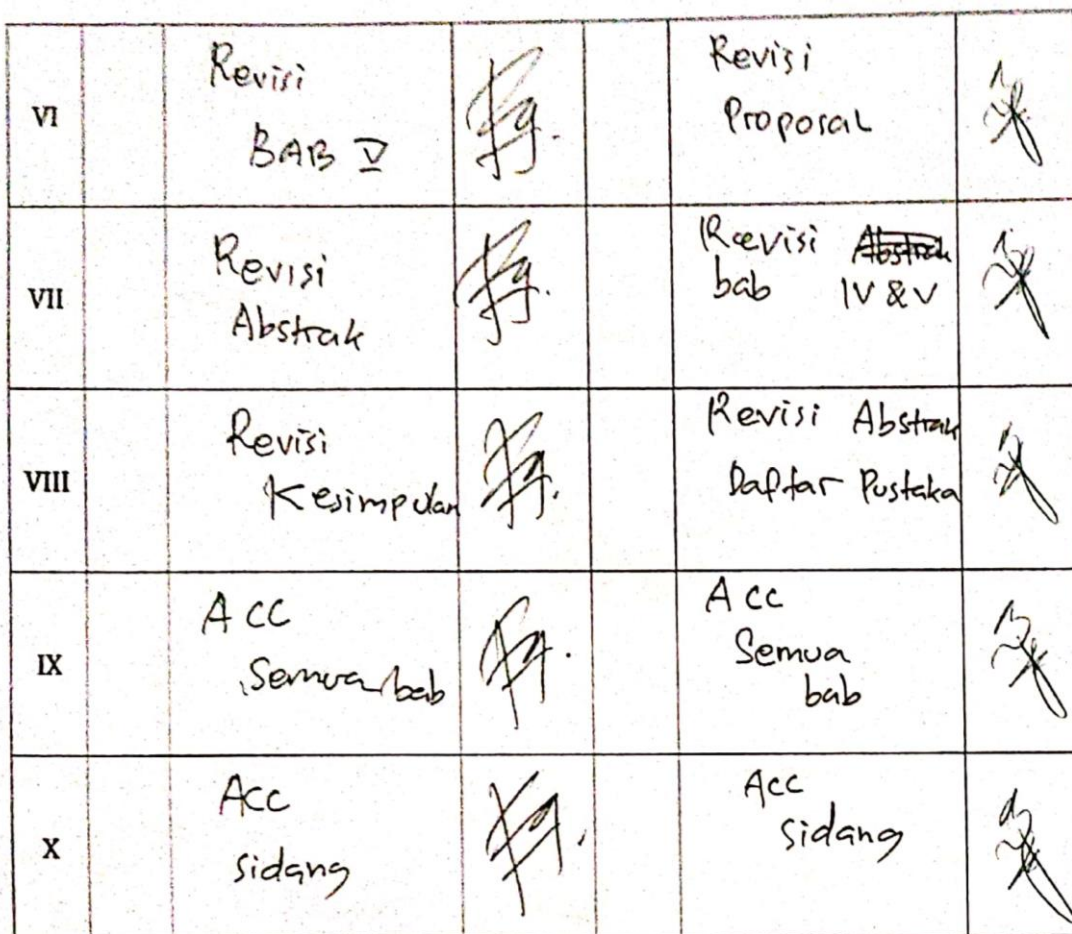 VI
Revisi
BAB V
Revisi
Proposal
VII
Revisi
Abstrak
Revisi Abstrak
bab IV & V
VIII
Revisi
Kesimpulan
Revisi Abstrak
Daftar Pustaka
IX
ACC
Semua bab
ACC
Semua
bab
X
ACC
sidang
ACC
sidang